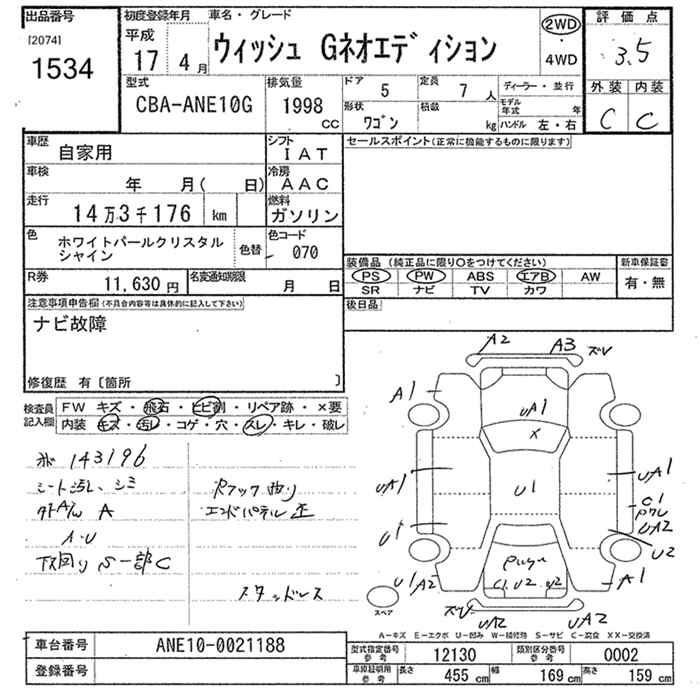 出品番号
[2074]
1534
初度登録年月
平成
17 4月
車名・グレード
ウィッシュ Gネオエディション
2WD
・
4WD
評価点
3.5
外装 内装
C C
型式
CBA-ANE10G
排気量
1998
CC
ドア
5
定員
7 人
形状
ワゴン
積載
kg
ディーラー・並行
モデル年式 年
ハンドル 左・右
車歴
自家用
シフト
IAT
セールスポイント(正常に機能するものに限ります)
車検
年 月( 日)
冷房
AAC
走行
14万3千176 km
燃料
ガソリン
色
ホワイトパールクリスタル
シャイン
色替
色コード
070
装備品(純正品に限り〇をつけてください)
PS PW ABS エアB AW
SR ナビ TV カワ
新車保証書
有・無
R券
11,630円
名変通知期限
月 日
後日品
注意事項申告欄(不具合内容等は具体的に記入して下さい)
ナビ故障
修復歴 有〔箇所 〕
検査員
記入欄
FW キズ・飛石・ヒビ割・リペア跡・×要
内装 キズ・汚レ・コゲ・穴・スレ・キレ・破レ
143196
シート汚レ、シミ
A
A・U
下回り S一部C
Rフック曲り
エンドパネル
スタッドレス
A2 A3 ズレ
A1
UA1
X
UA1
U1
UA1
C1
UA2
U1
U2
U1 A2
A1
C1 U2 U2
スペア
UA2 UA2
A-キズ E-エクボ U-凹み W-補修跡 S-サビ C-腐食 XX-交換済
車台番号
ANE10-0021188
型式指定番号
参考
12130
類別区分番号
参考
0002
登録番号
車庫証明用
参考
長さ 455 cm 幅 169 cm 高さ 159 cm